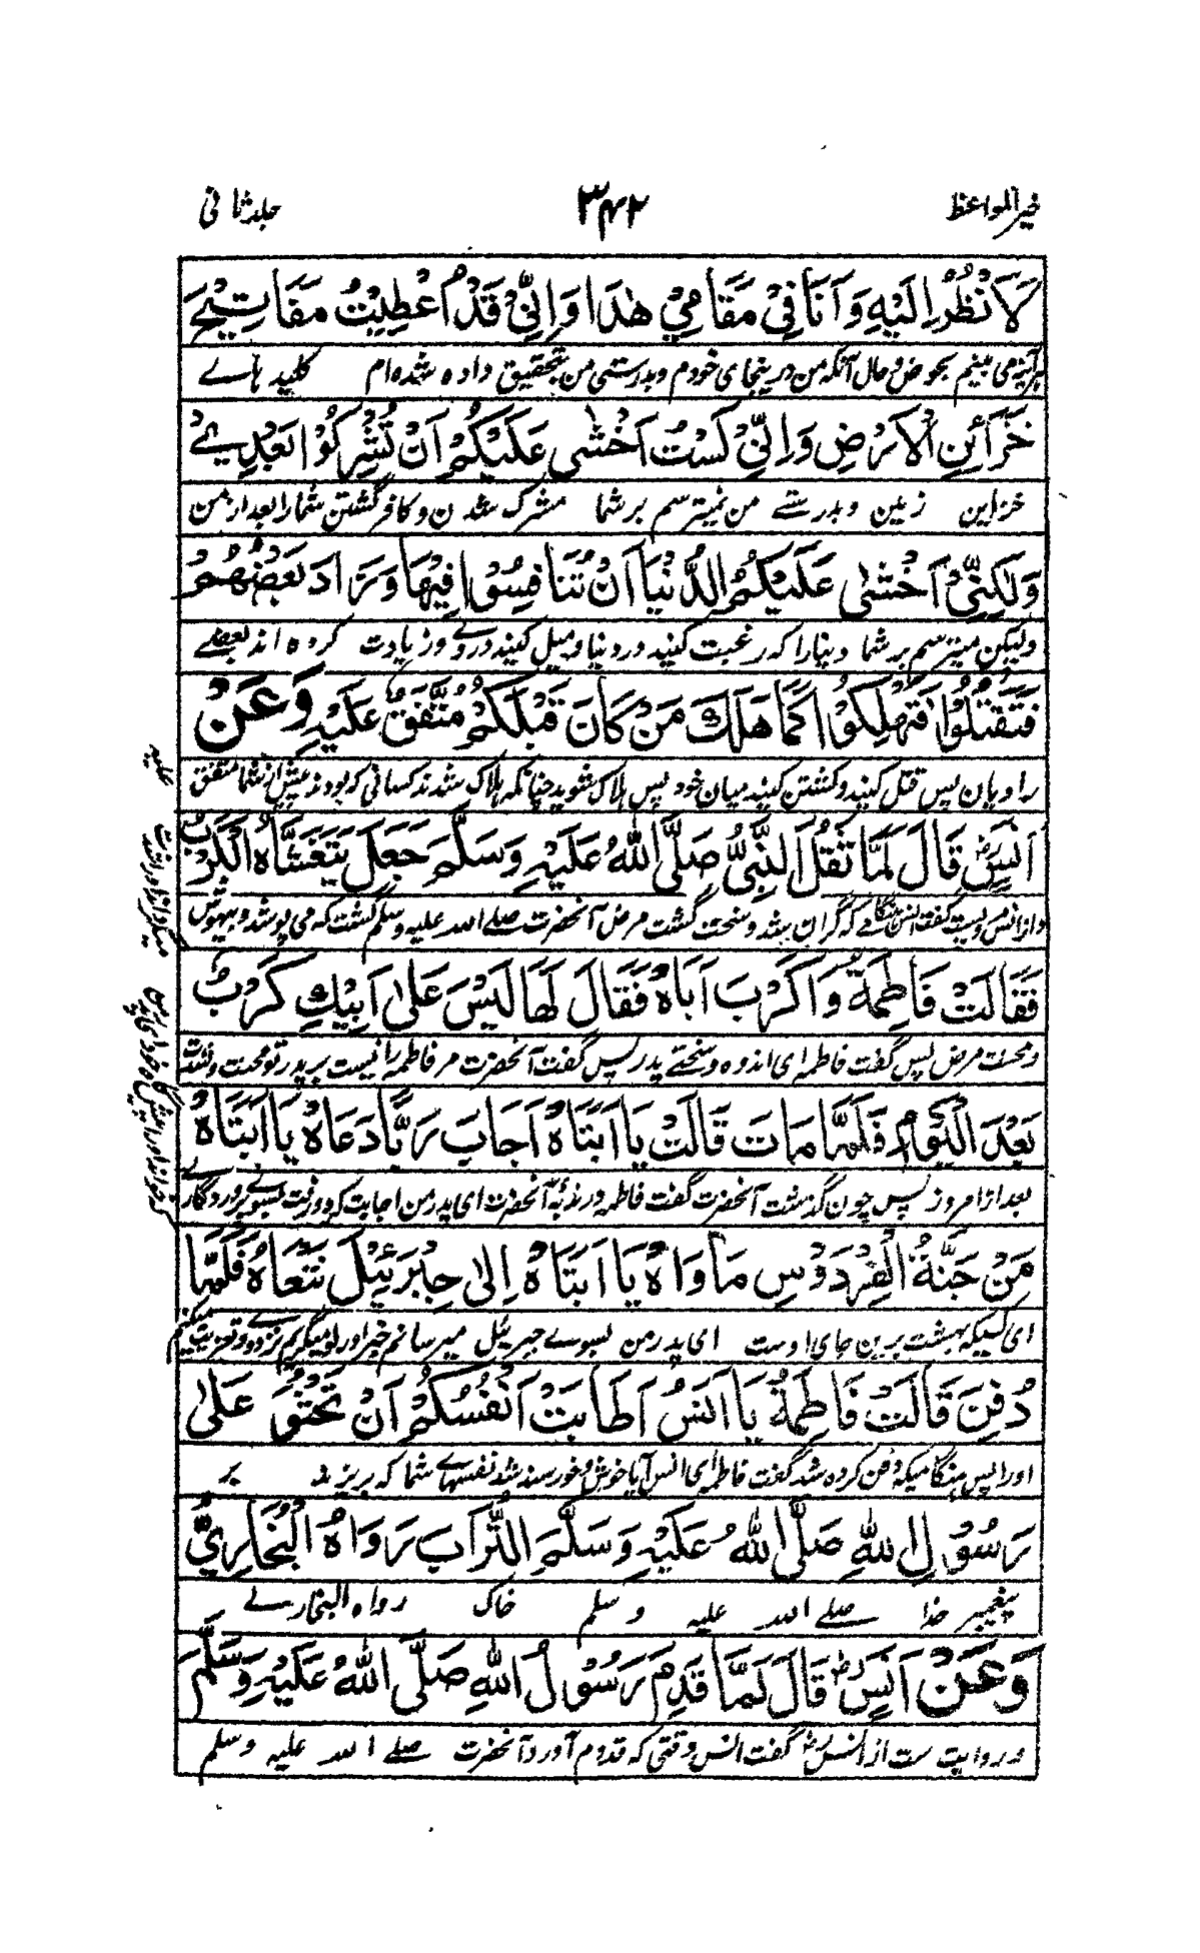 خیر المواعظ ۳۴۲ جلد ثانی
لَاَنْظُرُ اِلَيْهِ وَاَنَا فِيْ مَقَامِيْ هٰذَا وَاِنِّيْ قَدْ اُعْطِيْتُ مَفَاتِيْحَ
می بینم بحوض و حال آنکه من درینجای خودم و بدرستی من بتحقیق داده شده ام کلید ہاے
خَزَآئِنِ الْاَرْضِ وَاِنِّيْ لَسْتُ اَخْشٰى عَلَيْكُمْ اَنْ تُشْرِكُوْا بَعْدِيْ
خزاین زمین و بدرستے من نمیترسم بر شما مشرک شدن و کافر گشتن شما را بعد از من
وَلٰكِنِّيْ اَخْشٰى عَلَيْكُمُ الدُّنْيَا اَنْ تَنَافَسُوْا فِيْهَا وَزَادَ بَعْضُهُمْ
ولیکن میترسم بر شما دنیا را که رغبت کنید در دنیا و میل کنید دروے و زیادت کرده اند بعضے
فَتَقْتَتِلُوْا فَتَهْلِكُوْا كَمَا هَلَكَ مَنْ كَانَ قَبْلَكُمْ مُتَّفَقٌ عَلَيْهِ وَعَنْ
راویان پس قتل کنید و کشتن کنید میان خود پس ہلاک شوید چنانکه ہلاک شدند کسانی که بودند پیش از شما متفق
اَنَسٍ رض قَالَ لَمَّا ثَقُلَ النَّبِيُّ صَلَّى اللّٰهُ عَلَيْهِ وَسَلَّمَ جَعَلَ يَتَغَشَّاهُ الْكَرْبُ
و از انس گفت که گران شد و سخت گشت مرض آنحضرت صلے اللہ علیہ وسلم گشت که می پوشد و بیهوش
فَقَالَتْ فَاطِمَةُ وَاكَرْبَ اَبَاهُ فَقَالَ لَهَا لَيْسَ عَلٰى اَبِيْكِ كَرْبٌ
و محنت مرض پس گفت فاطمه ای اندوه و سختے پدر پس گفت آنحضرت مر فاطمه را نیست بر پدر تو محنت و شدت
بَعْدَ الْيَوْمِ فَلَمَّا مَاتَ قَالَتْ يَا اَبَتَاهُ اَجَابَ رَبًّا دَعَاهُ يَا اَبَتَاهُ
بعد از امروز پس چون گذشت آنحضرت گفت فاطمه در ندبه آنحضرت ای پدر من اجابت کرد و رفت بسوے پروردگارے
مَنْ جَنَّةُ الْفِرْدَوْسِ مَأْوَاهُ يَا اَبَتَاهُ اِلٰى جِبْرَئِيْلَ نَنْعَاهُ فَلَمَّا
ای کسیکه بہشت برین جای اوست ای پدر من بسوے جبرئیل میرسانم خبر او را و میگریم
دُفِنَ قَالَتْ فَاطِمَةُ يَا اَنَسُ اَطَابَتْ اَنْفُسُكُمْ اَنْ تَحْثُوْا عَلٰى
او را پس ہنگامیکه دفن کرده شد گفت فاطمه ای انس آیا خوش و خورسند شد نفسہاے شما که بریزند بر
رَسُوْلِ اللّٰهِ صَلَّى اللّٰهُ عَلَيْهِ وَسَلَّمَ التُّرَابَ رَوَاهُ الْبُخَارِيُّ
پیغمبر خدا صلے اللہ علیہ وسلم خاک رواه البخارے
وَعَنْ اَنَسٍ رض قَالَ لَمَّا قَدِمَ رَسُوْلُ اللّٰهِ صَلَّى اللّٰهُ عَلَيْهِ وَسَلَّمَ
و روایت ست از انس رض گفت انس وقتی که قدوم آورد آنحضرت صلے اللہ علیہ وسلم
علیه